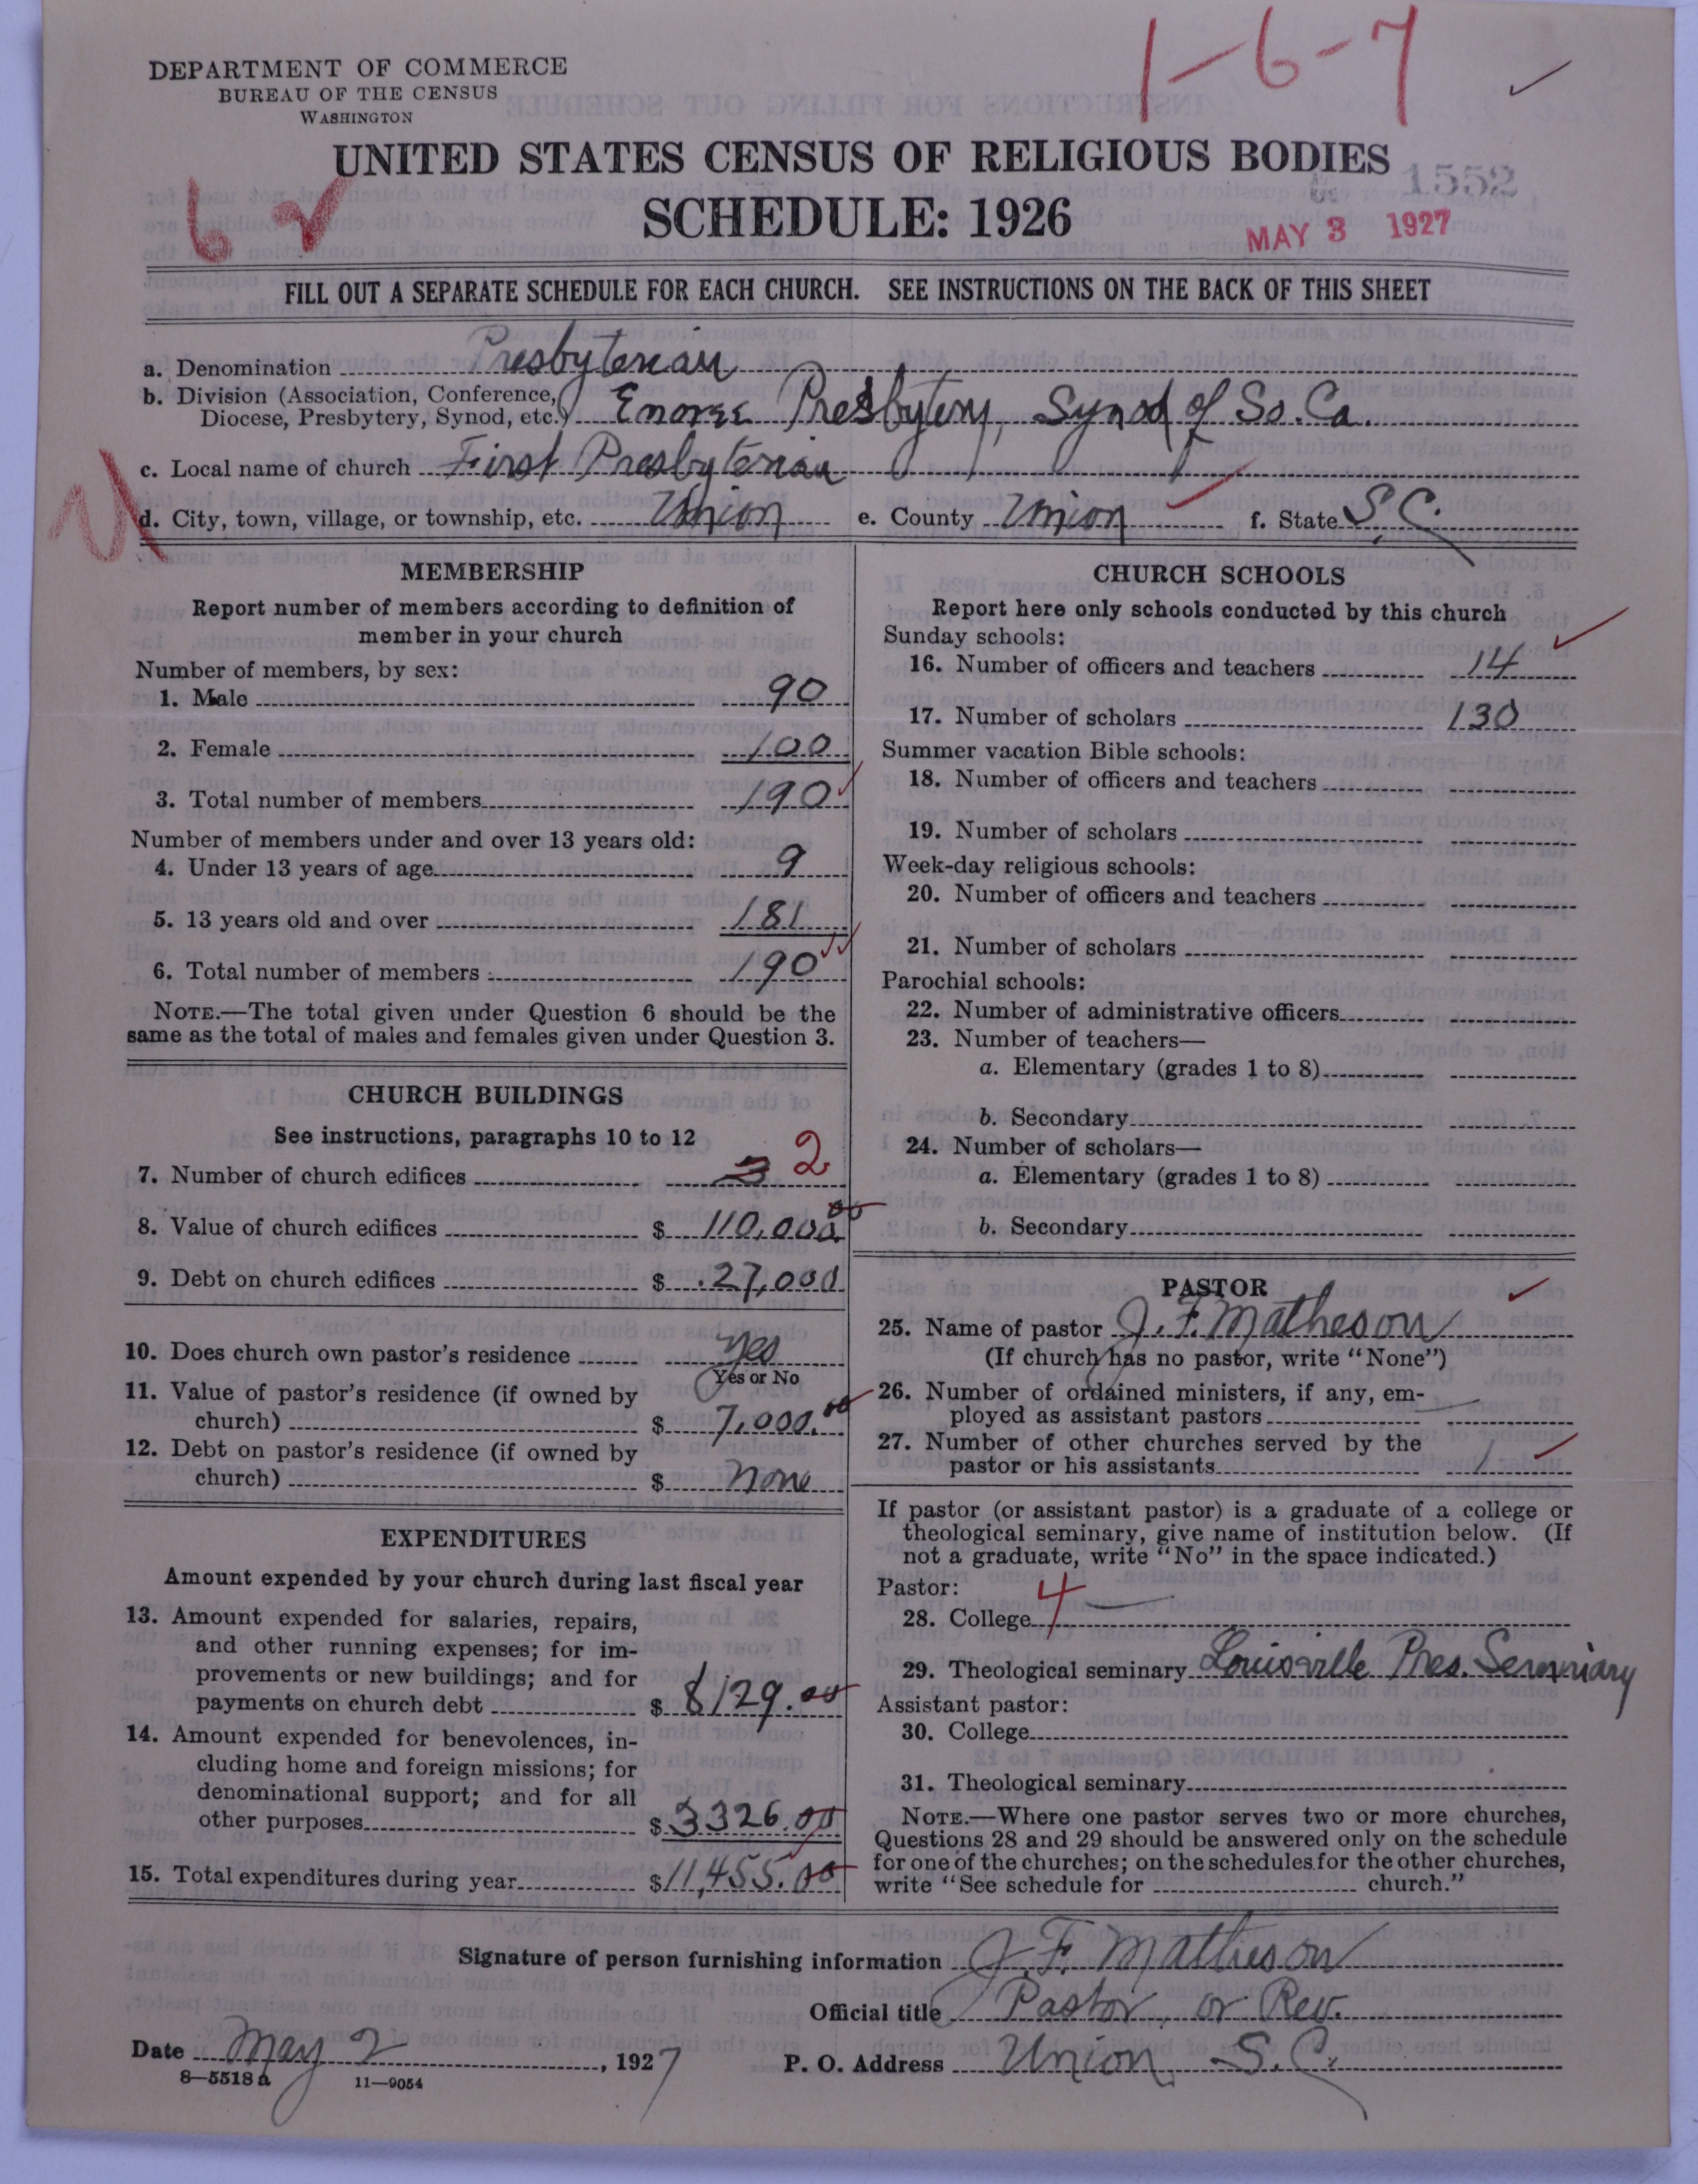 1-6-7
DEPARTMENT OF COMMERCE
BUREAU OF THE CENSUS
WASHINGTON
UNITED STATES CENSUS OF RELIGIOUS BODIES
1552
SCHEDULE: 1926
MAY 3 1927
6
FILL OUT A SEPARATE SCHEDULE FOR EACH CHURCH. SEE INSTRUCTIONS ON THE BACK OF THIS SHEET
a. Denomination Presbyterian
b. Division (Association, Conference,
Diocese, Presbytery, Synod, etc.) Enoree Presbytery, Synod of So. Ca.
c. Local name of church First Presbyterian
d. City, town, village, or township, etc. Union e. County Union f. State S.C.
MEMBERSHIP
Report number of members according to definition of
member in your church
Number of members, by sex:
1. Male 90
2. Female 100
3. Total number of members 190
Number of members under and over 13 years old:
4. Under 13 years of age 9
5. 13 years old and over 181
6. Total number of members 190
NOTE.—The total given under Question 6 should be the
same as the total of males and females given under Question 3.
CHURCH BUILDINGS
See instructions, paragraphs 10 to 12
7. Number of church edifices 2
8. Value of church edifices $ 110,000.00
9. Debt on church edifices $ 27,000
10. Does church own pastor's residence Yes
Yes or No
11. Value of pastor's residence (if owned by
church) $ 7,000.00
12. Debt on pastor's residence (if owned by
church) $ none
EXPENDITURES
Amount expended by your church during last fiscal year
13. Amount expended for salaries, repairs,
and other running expenses; for im-
provements or new buildings; and for
payments on church debt $ 8129.00
14. Amount expended for benevolences, in-
cluding home and foreign missions; for
denominational support; and for all
other purposes $ 3326.00
15. Total expenditures during year $ 11,455.00
CHURCH SCHOOLS
Report here only schools conducted by this church
Sunday schools:
16. Number of officers and teachers 14
17. Number of scholars 130
Summer vacation Bible schools:
18. Number of officers and teachers
19. Number of scholars
Week-day religious schools:
20. Number of officers and teachers
21. Number of scholars
Parochial schools:
22. Number of administrative officers
23. Number of teachers—
a. Elementary (grades 1 to 8)
b. Secondary
24. Number of scholars—
a. Elementary (grades 1 to 8)
b. Secondary
PASTOR
25. Name of pastor J. F. Matheson
(If church has no pastor, write "None")
26. Number of ordained ministers, if any, em-
ployed as assistant pastors
27. Number of other churches served by the
pastor or his assistants 1
If pastor (or assistant pastor) is a graduate of a college or
theological seminary, give name of institution below. (If
not a graduate, write "No" in the space indicated.)
Pastor:
28. College 4
29. Theological seminary Louisville Pres. Seminary
Assistant pastor:
30. College
31. Theological seminary
NOTE.—Where one pastor serves two or more churches,
Questions 28 and 29 should be answered only on the schedule
for one of the churches; on the schedules for the other churches,
write "See schedule for church."
Signature of person furnishing information J. F. Matheson
Official title Pastor, or Rev.
Date May 2, 1927 P. O. Address Union S.C.
8—5518a 11—9054